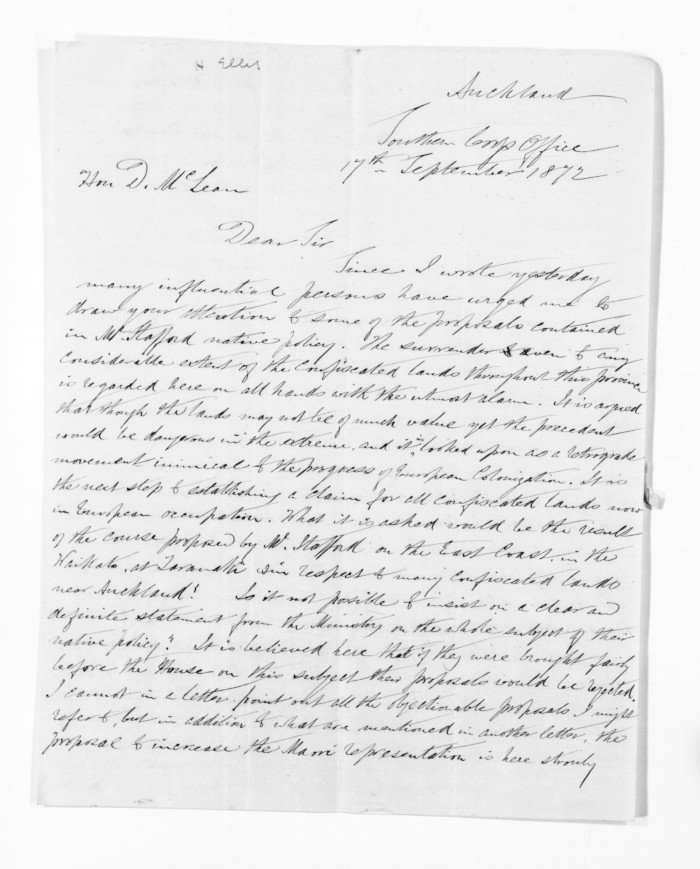 H Ellis
Auckland
Southern Corp Office
17th September 1872
Hon D. McLean
Dear Sir
Since I wrote yesterday
many influential persons have urged me to
draw your attention to some of the proposals contained
in Mr Stafford native policy. The surrender even to any
considerable extent of the confiscated lands throughout this province
is regarded here on all hands with the utmost alarm. It is argued
that though the lands may not be of much value yet the precedent
would be dangerous in the extreme, and it is looked upon as a retrograde
movement inimical to the progress of European Colonization. It is
the next step to establishing a claim for all confiscated lands now
in European occupation. What it is asked would be the result
of the course proposed by Mr. Stafford on the East Coast, in the
Waikato, at Taranaki & in respect to many confiscated lands
near Auckland! Is it not posible to insist on a clear and
definite statement from the Ministry on the whole subject of their
native "policy". It is believed here that if they were brought fairly
before the House on this subject their proposals would be rejected.
I cannot in a letter point out all the objectionable proposals I might
refer to, but in addition to what are mentioned in another letter, the
proposal to increase the Maori representation is here strongly